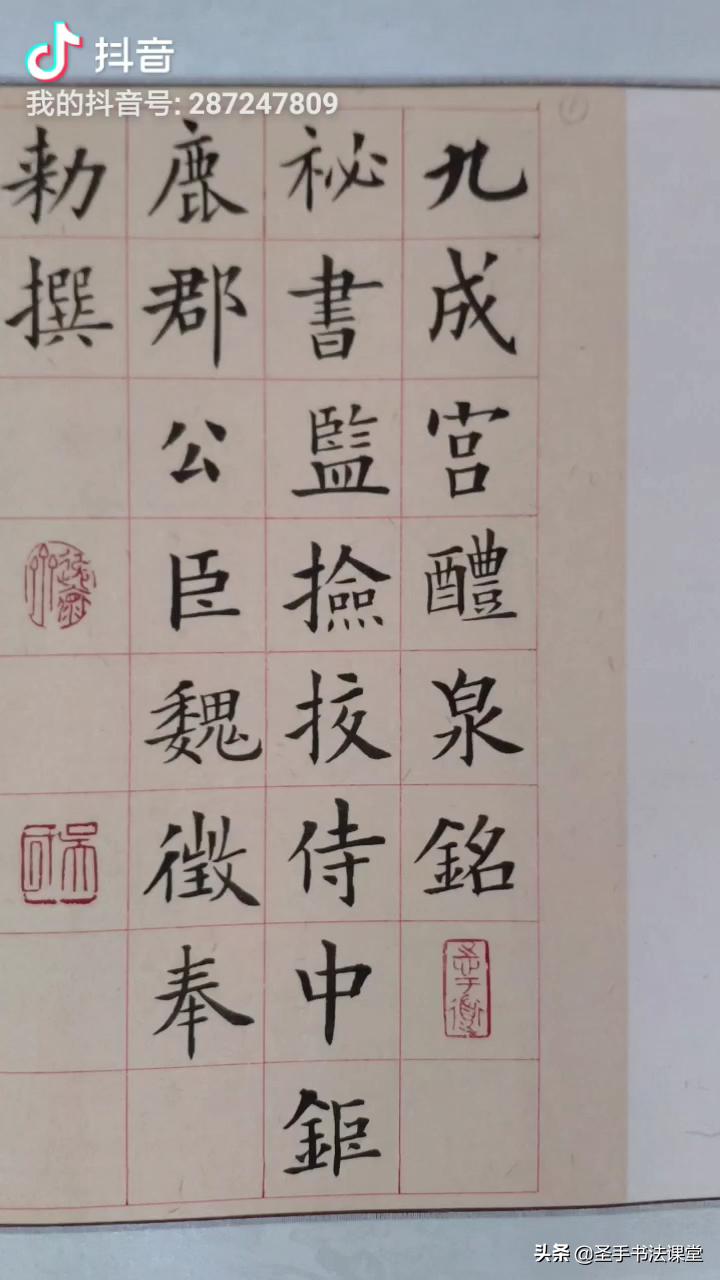 抖音
我的抖音号: 287247809
九成宮醴泉銘
祕書監撿挍侍中鉅
鹿郡公臣魏徵奉
勑撰
头条 @圣手书法课堂